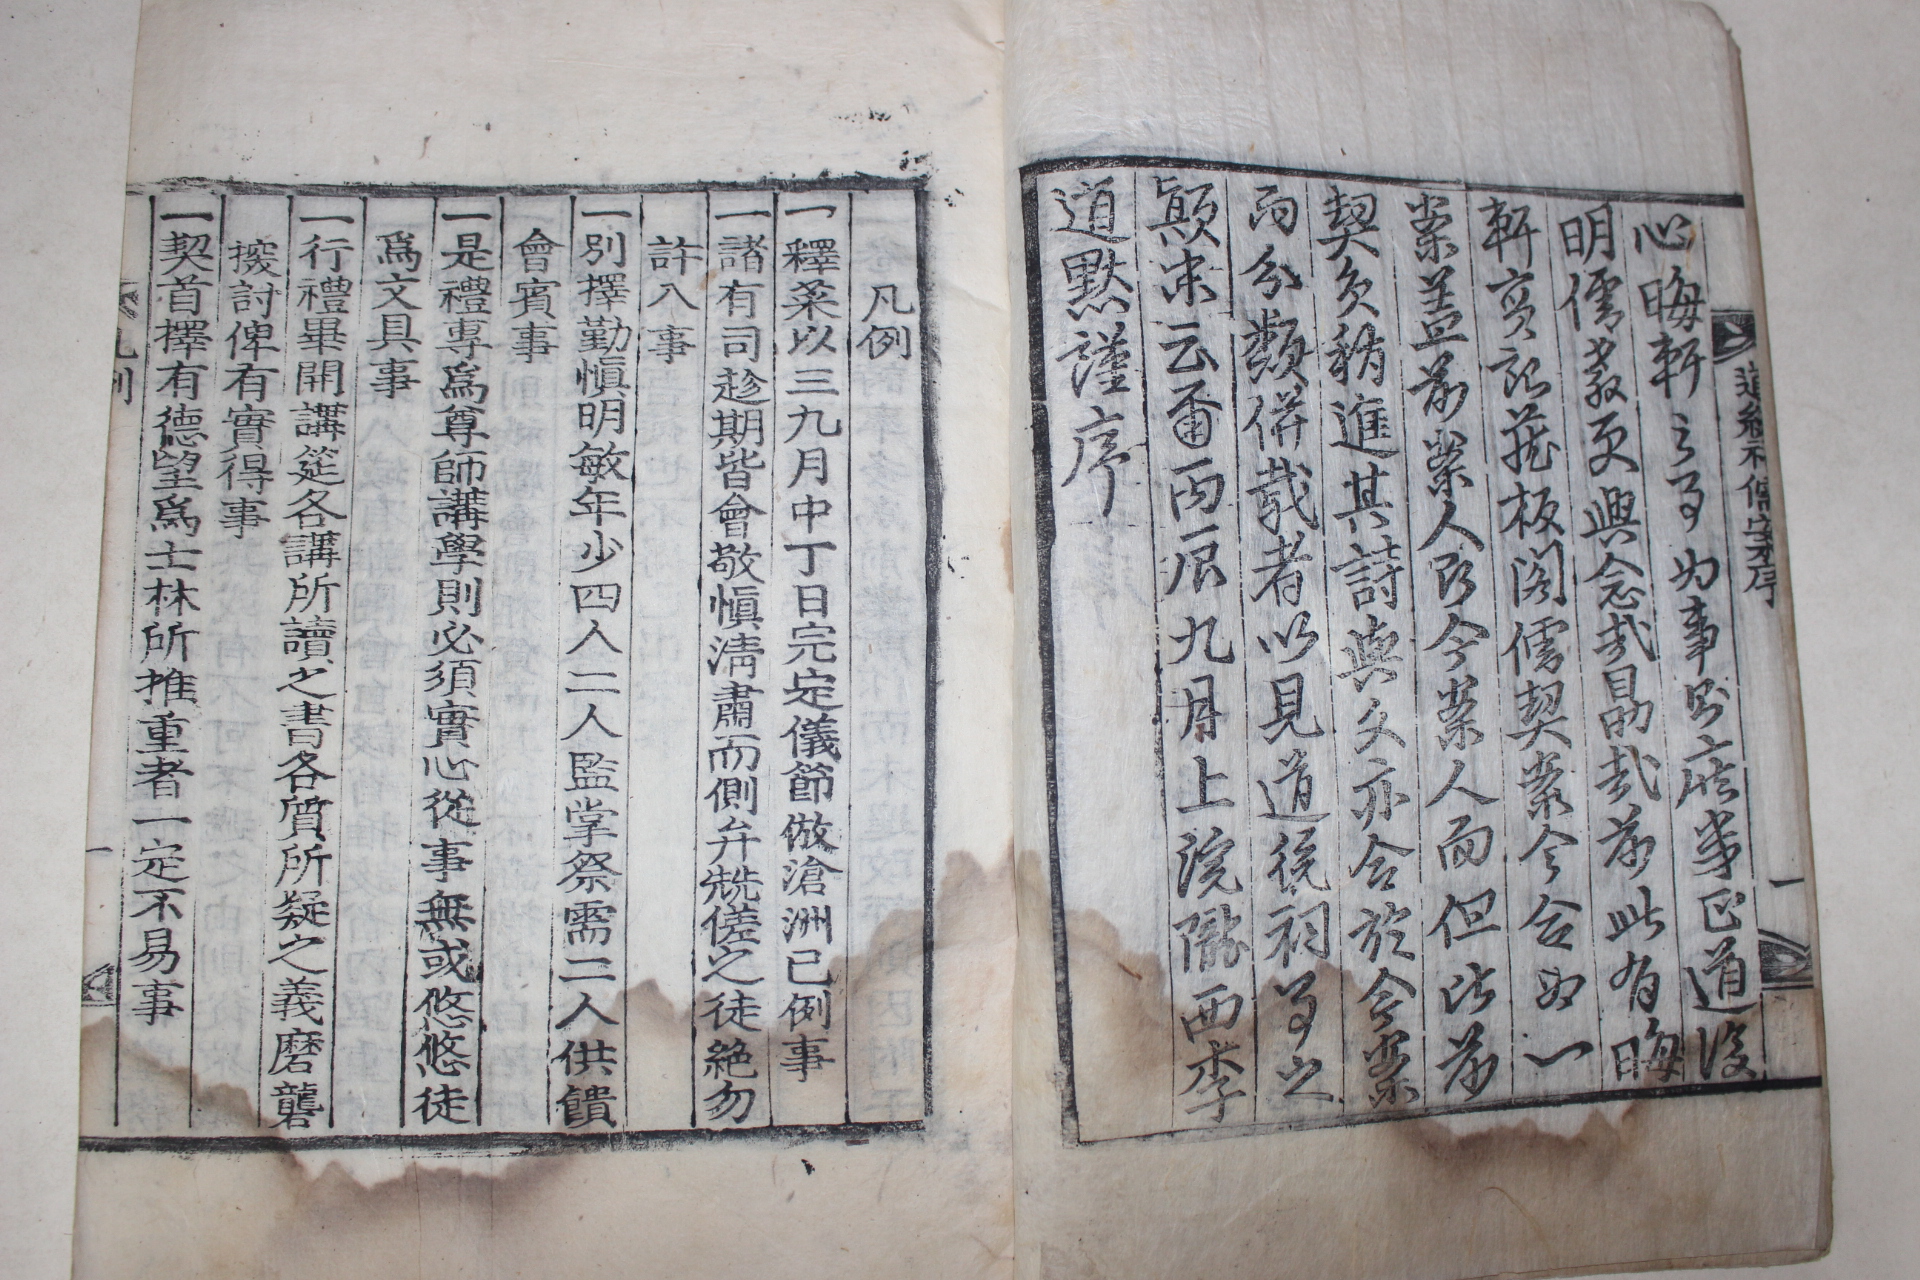 道統祠儒案序
一
心晦軒之事为事則庶幾正道復
明儒教更興念哉勗哉前此有晦
軒實記藏板閣儒契案今合如一
案盖前案人即今案人而但此前
契矣稍進其詩與文亦合於今案
而分類併載者以見道統祠事之
顛末云爾丙辰九月上浣隴西李
道默謹序
凡例
一釋菜以三九月中丁日完定儀節倣滄洲已例事
一諸有司趁期皆會敬愼淸肅而側弁㒇傞之徒絶勿
許入事
一別擇勤愼明敏年少四人二人監掌祭需二人供饋
會賓事
一是禮專爲尊師講學則必須實心從事無或悠悠徒
爲文具事
一行禮畢開講筵各講所讀之書各質所疑之義磨礱
撥討俾有實得事
一契首擇有德望爲士林所推重者一定不易事
凡例
一